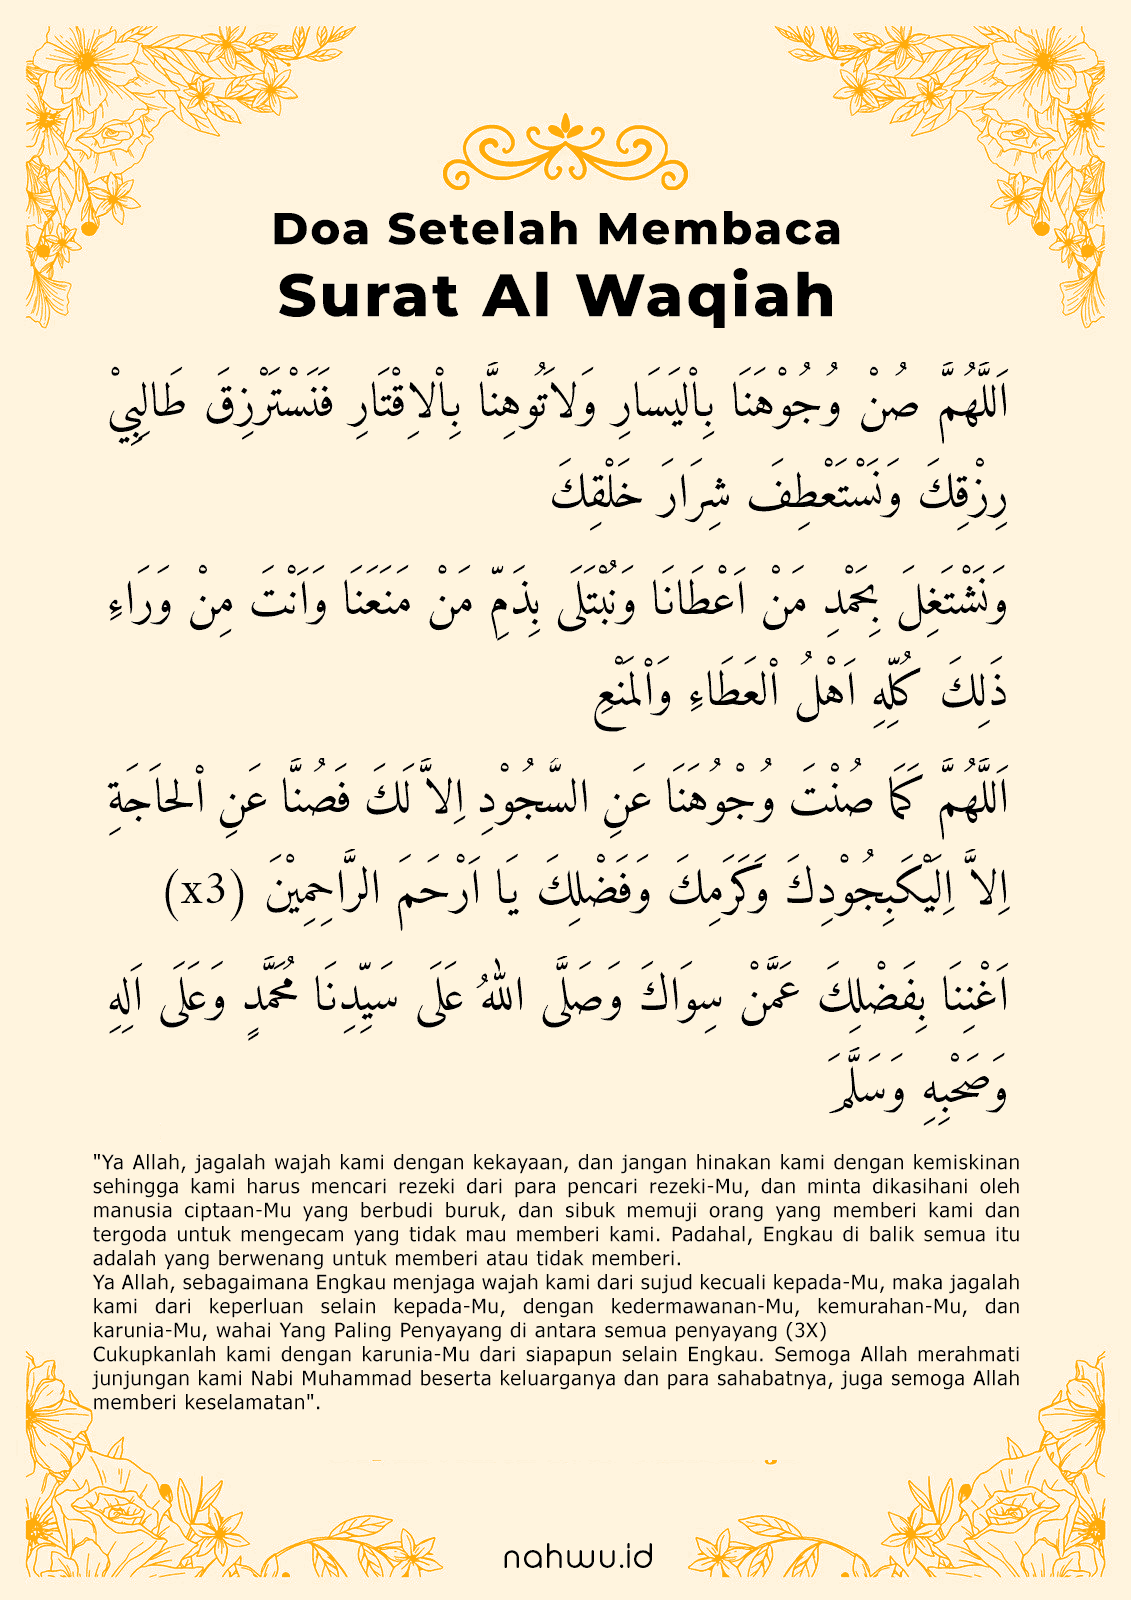 Doa Setelah Membaca
Surat Al Waqiah
اَللَّهُمَّ صُنْ وُجُوْهَنَا بِاْليَسَارِ وَلاَتُوهِنَّا بِاْلاِقْتَارِ فَنَسْتَرْزِقَ طَالِبِيْ
رِزْقِكَ وَنَسْتَعْطِفَ شِرَارَ خَلْقِكَ
وَنَشْتَغِلَ بِحَمْدِ مَنْ اَعْطَانَا وَنُبْتَلَى بِذَمِّ مَنْ مَنَعَنَا وَاَنْتَ مِنْ وَرَاءِ
ذَلِكَ كُلِّهِ اَهْلُ اْلعَطَاءِ وَاْلمَنْعِ
اَللَّهُمَّ كَمَا صُنْتَ وُجُوْهَنَا عَنِ السُّجُوْدِ اِلاَّ لَكَ فَصُنَّا عَنِ اْلحاَجَةِ
اِلاَّ اِلَيْكَبِجُوْدِكَ وَكَرَمِكَ وَفَضْلِكَ يَا اَرْحَمَ الرَّاحِمِيْنَ (x3)
اَغْنِنَا بِفَضْلِكَ عَمَّنْ سِوَاكَ وَصَلَّى اللهُ عَلَى سَيِّدِنَا مُحَمَّدٍ وَعَلَى اَلِهِ
وَصَحْبِهِ وَسَلَّمَ
"Ya Allah, jagalah wajah kami dengan kekayaan, dan jangan hinakan kami dengan kemiskinan
sehingga kami harus mencari rezeki dari para pencari rezeki-Mu, dan minta dikasihani oleh
manusia ciptaan-Mu yang berbudi buruk, dan sibuk memuji orang yang memberi kami dan
tergoda untuk mengecam yang tidak mau memberi kami. Padahal, Engkau di balik semua itu
adalah yang berwenang untuk memberi atau tidak memberi.
Ya Allah, sebagaimana Engkau menjaga wajah kami dari sujud kecuali kepada-Mu, maka jagalah
kami dari keperluan selain kepada-Mu, dengan kedermawanan-Mu, kemurahan-Mu, dan
karunia-Mu, wahai Yang Paling Penyayang di antara semua penyayang (3X)
Cukupkanlah kami dengan karunia-Mu dari siapapun selain Engkau. Semoga Allah merahmati
junjungan kami Nabi Muhammad beserta keluarganya dan para sahabatnya, juga semoga Allah
memberi keselamatan".
nahwu.id